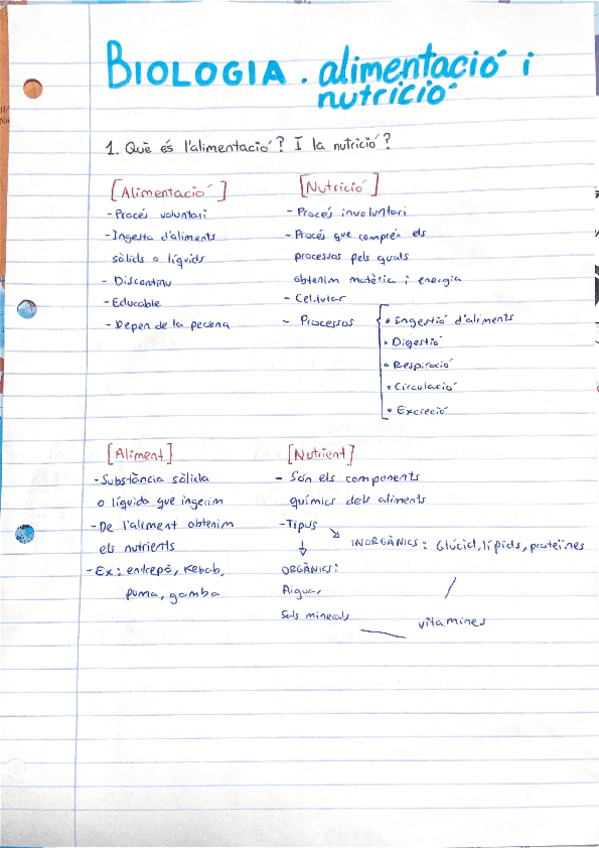 BIOLOGIA. alimentació i
nutrició
1. Què és l'alimentació? I la nutrició?
[Alimentació]
- Procés voluntari
- Ingesta d'aliments
sòlids o líquids
- Discontinu
- Educable
- Depen de la persona
[Nutrició]
- Procés involuntari
- Procés que comprén els
processos pels quals
obtenim matèria i energia
- Cel·lular
- Processos
• Ingestió d'aliments
• Digestió
• Respiració
• Circulació
• Excreció
[Aliment]
- Substància sòlida
o líquida que ingerim
- De l'aliment obtenim
els nutrients
- Ex: entrepà, Kebab,
poma, gamba
[Nutrient]
- Són els components
químics dels aliments
- Tipus
INORGÀNICS: Glúcid, lípids, proteïnes
ORGÀNICS:
Aigua,
Sals minerals
vitamines